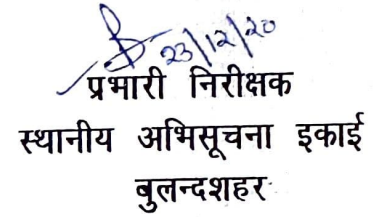 23/12/20
प्रभारी निरीक्षक
स्थानीय अभिसूचना इकाई
बुलन्दशहर